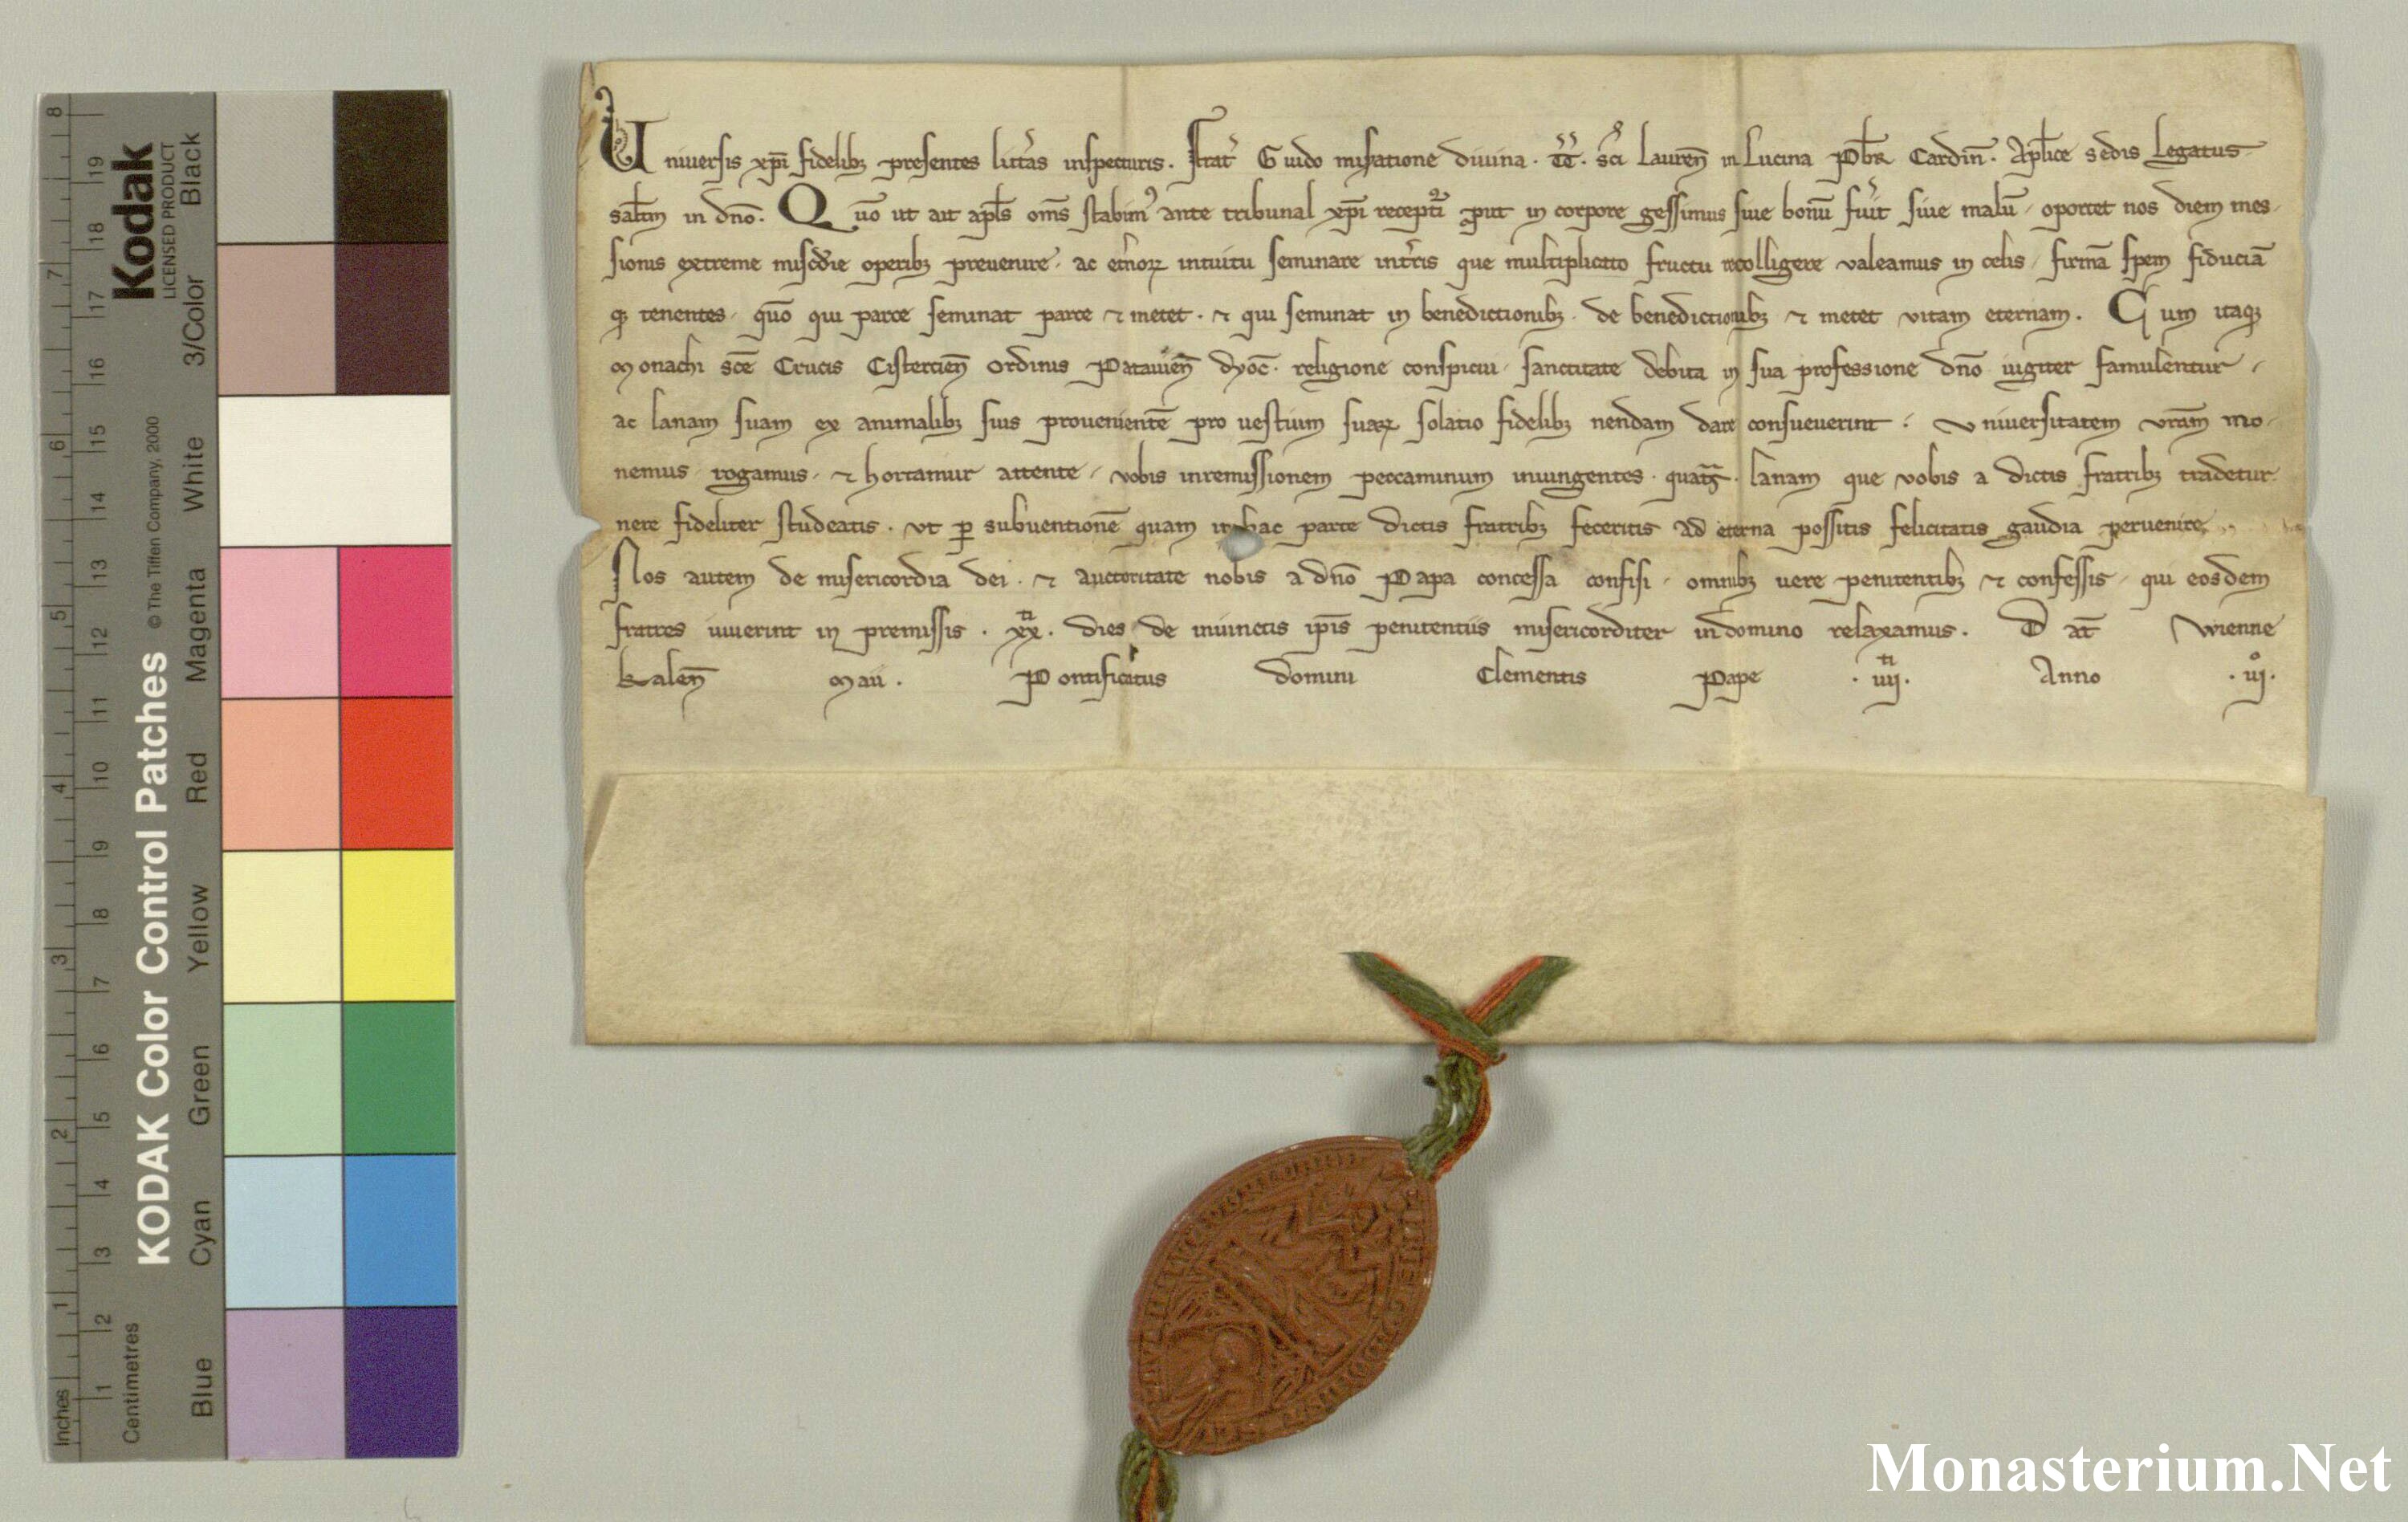 Kodak
LICENSED PRODUCT
KODAK Color Control Patches
© The Tiffen Company, 2000
Black
3/Color
White
Magenta
Red
Yellow
Green
Cyan
Blue
Inches
1 2 3 4 5 6 7 8
Centimetres
1 2 3 4 5 6 7 8 9 10 11 12 13 14 15 16 17 18 19
Uniuersis xp̄i fidelibꝫ presentes litt̄as inspecturis. Frat̄ Guido mis̄atione diuina. tt̄. sc̄i Lauren̄ in Lucina Pb̄r Cardin̄. Apl̄ice sedis Legatus
salt̄m in dn̄o. Qūo ut ait apl̄s om̄s stabim᷒ ante tribunal xp̄i recept̄i ꝓut in corpore gessimus siue bonū fūit siue malū. oportet nos diem mes
sionis extreme mis̄cdie operibꝫ preuenire. ac et̄noꝝ intuitu seminare int̄ris que multiplicato fructu recolligere valeamus in celis. firmā spem fiduciā
qꝫ tenentes. qūo qui parce seminat parce ⁊ metet. ⁊ qui seminat in benedictionibꝫ. de benedictionibꝫ ⁊ metet vitam eternam. Cum itaqꝫ
Monachi sc̄e Crucis Cistercien̄ Ordinis Patauien̄ dyoc̄. religione conspicui. sanctitate debita in sua professione dn̄o iugiter famulentur.
ac lanam suam ex animalibꝫ suis prouenientē pro uestium suaꝝ solatio fidelibꝫ nendam dare consueuerint. Uniuersitatem vrām mo
nemus. rogamus. ⁊ hortamur attente. vobis inremissionem peccaminum iniungentes. quat̄. lanam que vobis a dictis fratribꝫ tradetur
nere fideliter studeatis. vt ꝑ subuentionē quam in hac parte dictis fratribꝫ feceritis ad eterna possitis felicitatis gaudia peruenire.
Nos autem de misericordia dei. ⁊ auctoritate nobis a dn̄o Papa concessa confisi. omnibꝫ uere penitentibꝫ ⁊ confessis. qui eosdem
fratres iuuerint in premissis. xx̄. dies de iniunctis ip̄is penitentiis misericorditer in domino relaxamus. Dat̄ Wienne
kalen̄ Maii. Pontificatus domini Clementis Pape .iiij. Anno .iij.
Monasterium.Net